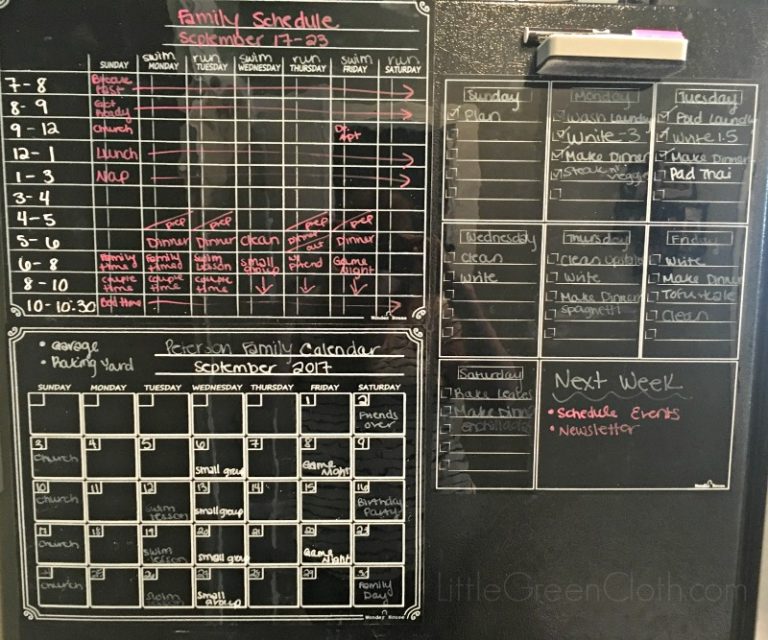 Family Schedule
September 17-23
swim run swim run swim run
SUNDAY MONDAY TUESDAY WEDNESDAY THURSDAY FRIDAY SATURDAY
7-8 Break fast
8-9 Get Ready
9-12 Church Dr. Apt
12-1 Lunch
1-3 Nap
3-4
4-5 prep prep prep prep
5-6 Dinner Dinner Clean Dinner out Dinner
6-8 Family time Family time Swim Lesson small group w/ friend Game Night
8-10 couple time couple time couple time
10-10:30 Bed time
Wonder House
• Garage
• Raking Yard
Peterson Family Calendar
September 2017
SUNDAY MONDAY TUESDAY WEDNESDAY THURSDAY FRIDAY SATURDAY
1 2 Friends over
3 Church 4 5 6 small group 7 8 Game Night 9
10 Church 11 12 swim lesson 13 small group 14 15 16 Birthday Party
17 Church 18 19 swim lesson 20 small group 21 Game Night 23
Church 25 26 swim Small Group 28 29 30 Family Day
Wonder House
Sunday
Plan
Monday
Wash Laundry
Write -3
Make Dinner
Steak veggie
Tuesday
Fold Laundry
Write 1.5
Make Dinner
Pad Thai
Wednesday
Clean
Write
Thursday
Clean
Write
Make Dinner
spaghetti
Friday
Write
Make Dinner
Tofu + kale
Clean
Saturday
Make Dinner
enchiladas
Next Week
• Schedule Events
• Newsletter
Wonder House
LittleGreenCloth.com